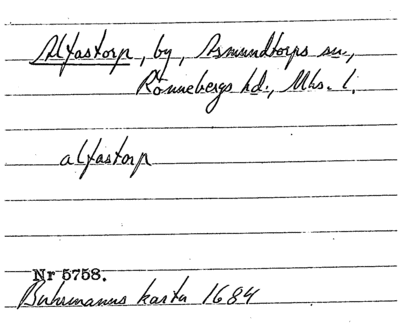 Alfastorp, by, Asmundtorps sn.,
Rönnebergs hd., Mhs. l.
alfastorp
Nr 5758.
Buhrmanns karta 1684